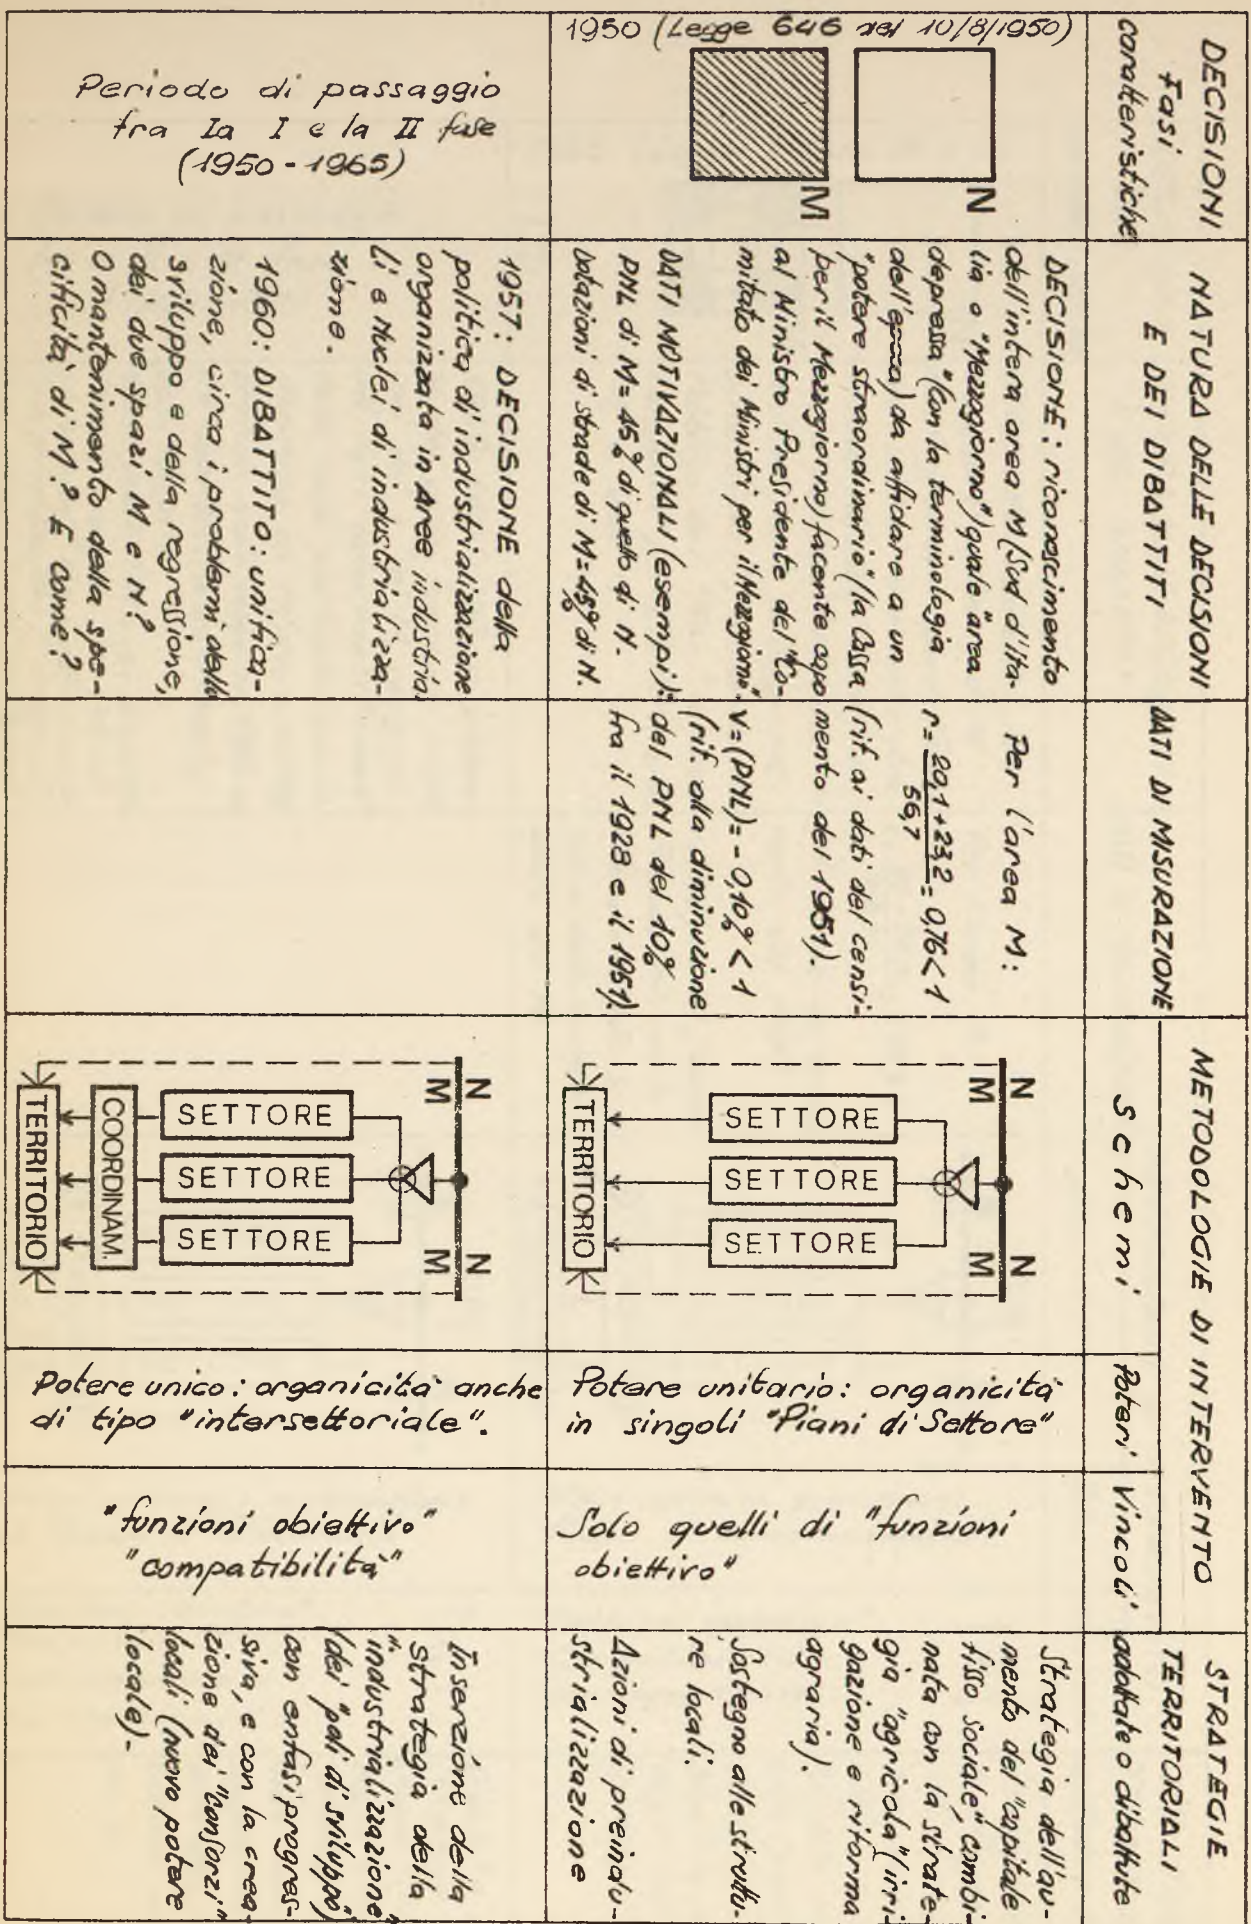 DECISIONI
Fasi
caratteristiche
NATURA DELLE DECISIONI
E DEI DIBATTITI
DATI DI MISURAZIONE
METODOLOGIE DI INTERVENTO
Schemi
Poteri
Vincoli
STRATEGIE
TERRITORIALI
adottate o dibattute
1950 (Legge 646 del 10/8/1950)
N
M
DECISIONE: riconoscimento
dell'intera area M (Sud d'Ita-
lia o "Mezzogiorno") quale "area
depressa" (con la terminologia
dell'epoca) da affidare a un
"potere straordinario" (la Cassa
per il Mezzogiorno) facente capo
al Ministro Presidente del "Co-
mitato dei Ministri per il Mezzogiorno".
DATI MOTIVAZIONALI (esempi):
PNL di M= 45% di quello di N.
Dotazioni di strade di M=45% di N.
Per l'area M:
r= 20,1+23,2 = 0,76<1
56,7
(rif. ai dati del censi-
mento del 1951).
V=(PNL)= -0,10% < 1
(rif. alla diminuzione
del PNL del 10%
fra il 1928 e il 1951).
N N
M M
SETTORE
SETTORE
SETTORE
TERRITORIO
Potere unitario: organicità
in singoli "Piani di Settore"
Solo quelli di "funzioni
obiettivo"
Strategia dell'au-
mento del "capitale
fisso sociale", combi-
nata con la strate-
gia "agricola" (irri-
gazione e riforma
agraria).
Sostegno alle struttu-
re locali.
Azioni di preindu-
strializzazione
Periodo di passaggio
fra la I e la II fase
(1950-1965)
1957: DECISIONE della
politica di industrializzazione
organizzata in Aree industria
li e Nuclei di industrializza-
zione.
1960: DIBATTITO: unifica-
zione, circa i problemi dello
sviluppo e della regressione,
dei due spazi M e N?
O mantenimento della spe-
cificità di M? E come?
N N
M M
SETTORE
SETTORE
SETTORE
COORDINAM.
TERRITORIO
Potere unico: organicità anche
di tipo "intersettoriale".
"funzioni obiettivo"
"compatibilità"
Inserzione della
strategia della
"industrializzazione"
(dei "poli di sviluppo")
con enfasi progres-
siva, e con la crea-
zione dei "consorzi"
locali (nuovo potere
locale).